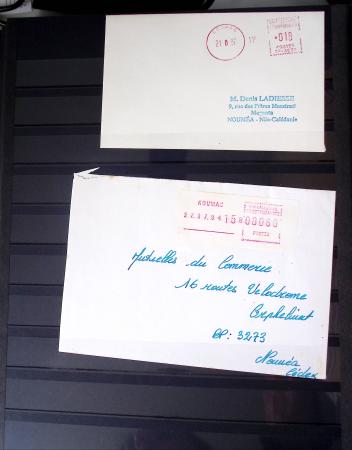 21 8
018
POSTES
M. Denis LADIESSE
9, rue des Frères Monstrat
Magenta
NOUMÉA - Nlle-Calédonie
KOUMAC
15H 00060
POSTES
Mutuelles du Commerce
16 routes Vélodrome
Orphelinat
BP: 3273
Nouméa
Cédex